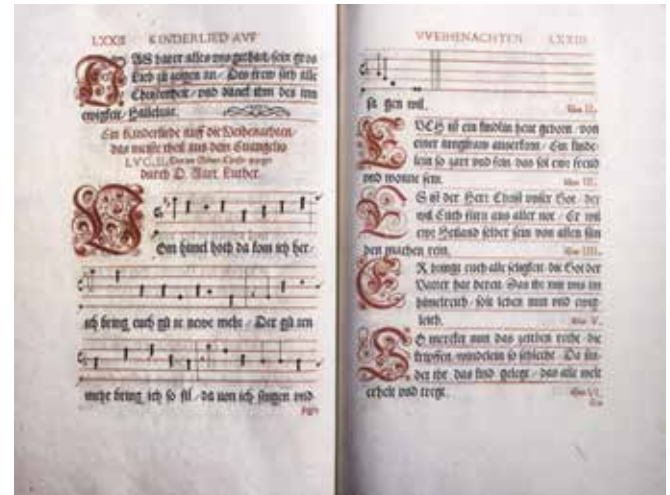 LXXII KINDERLIED AVF
AS hat er alles vns gethan, sein gros
Lieb zů zeigen an / Des frew sich alle
Christenheit / vnd danck ihm des inn
ewigkeit / Halleluia.
Ein Kinderliede auff die Weihenachten,
das meiste theil aus dem Euangelio
LVC. II.
durch D. Mart. Luther.
Om himel hoch da kom ich her /
ich bring euch gů te newe mehr / Der gů ten
mehr bring ich so fil / da uon ich singen vnd
VVEIHENACHTEN LXXIII
sa gen wil.
VCH ist ein kindlin heut geborn / von
einer iungfraw auserkorn / Ein kinde-
lein so zart vnd fein, das sol ewr freud
vnd wonne sein.
S ist der Herr Christ vnser Got / der
wil Euch fürn aus aller not / Er wil
ewr Heiland selber sein von allen sün
den machen rein.
R bringt euch alle seligkeit, die Got der
Vatter hat bereit, Das ihr mit vns im
himelreich / solt leben nun vnd ewig-
leich.
O mercket nun das zeichen recht / die
kripffen / windelein so schlecht / Da fin-
det ihr das kind gelegt / das alle welt
erhelt vnd tregt.